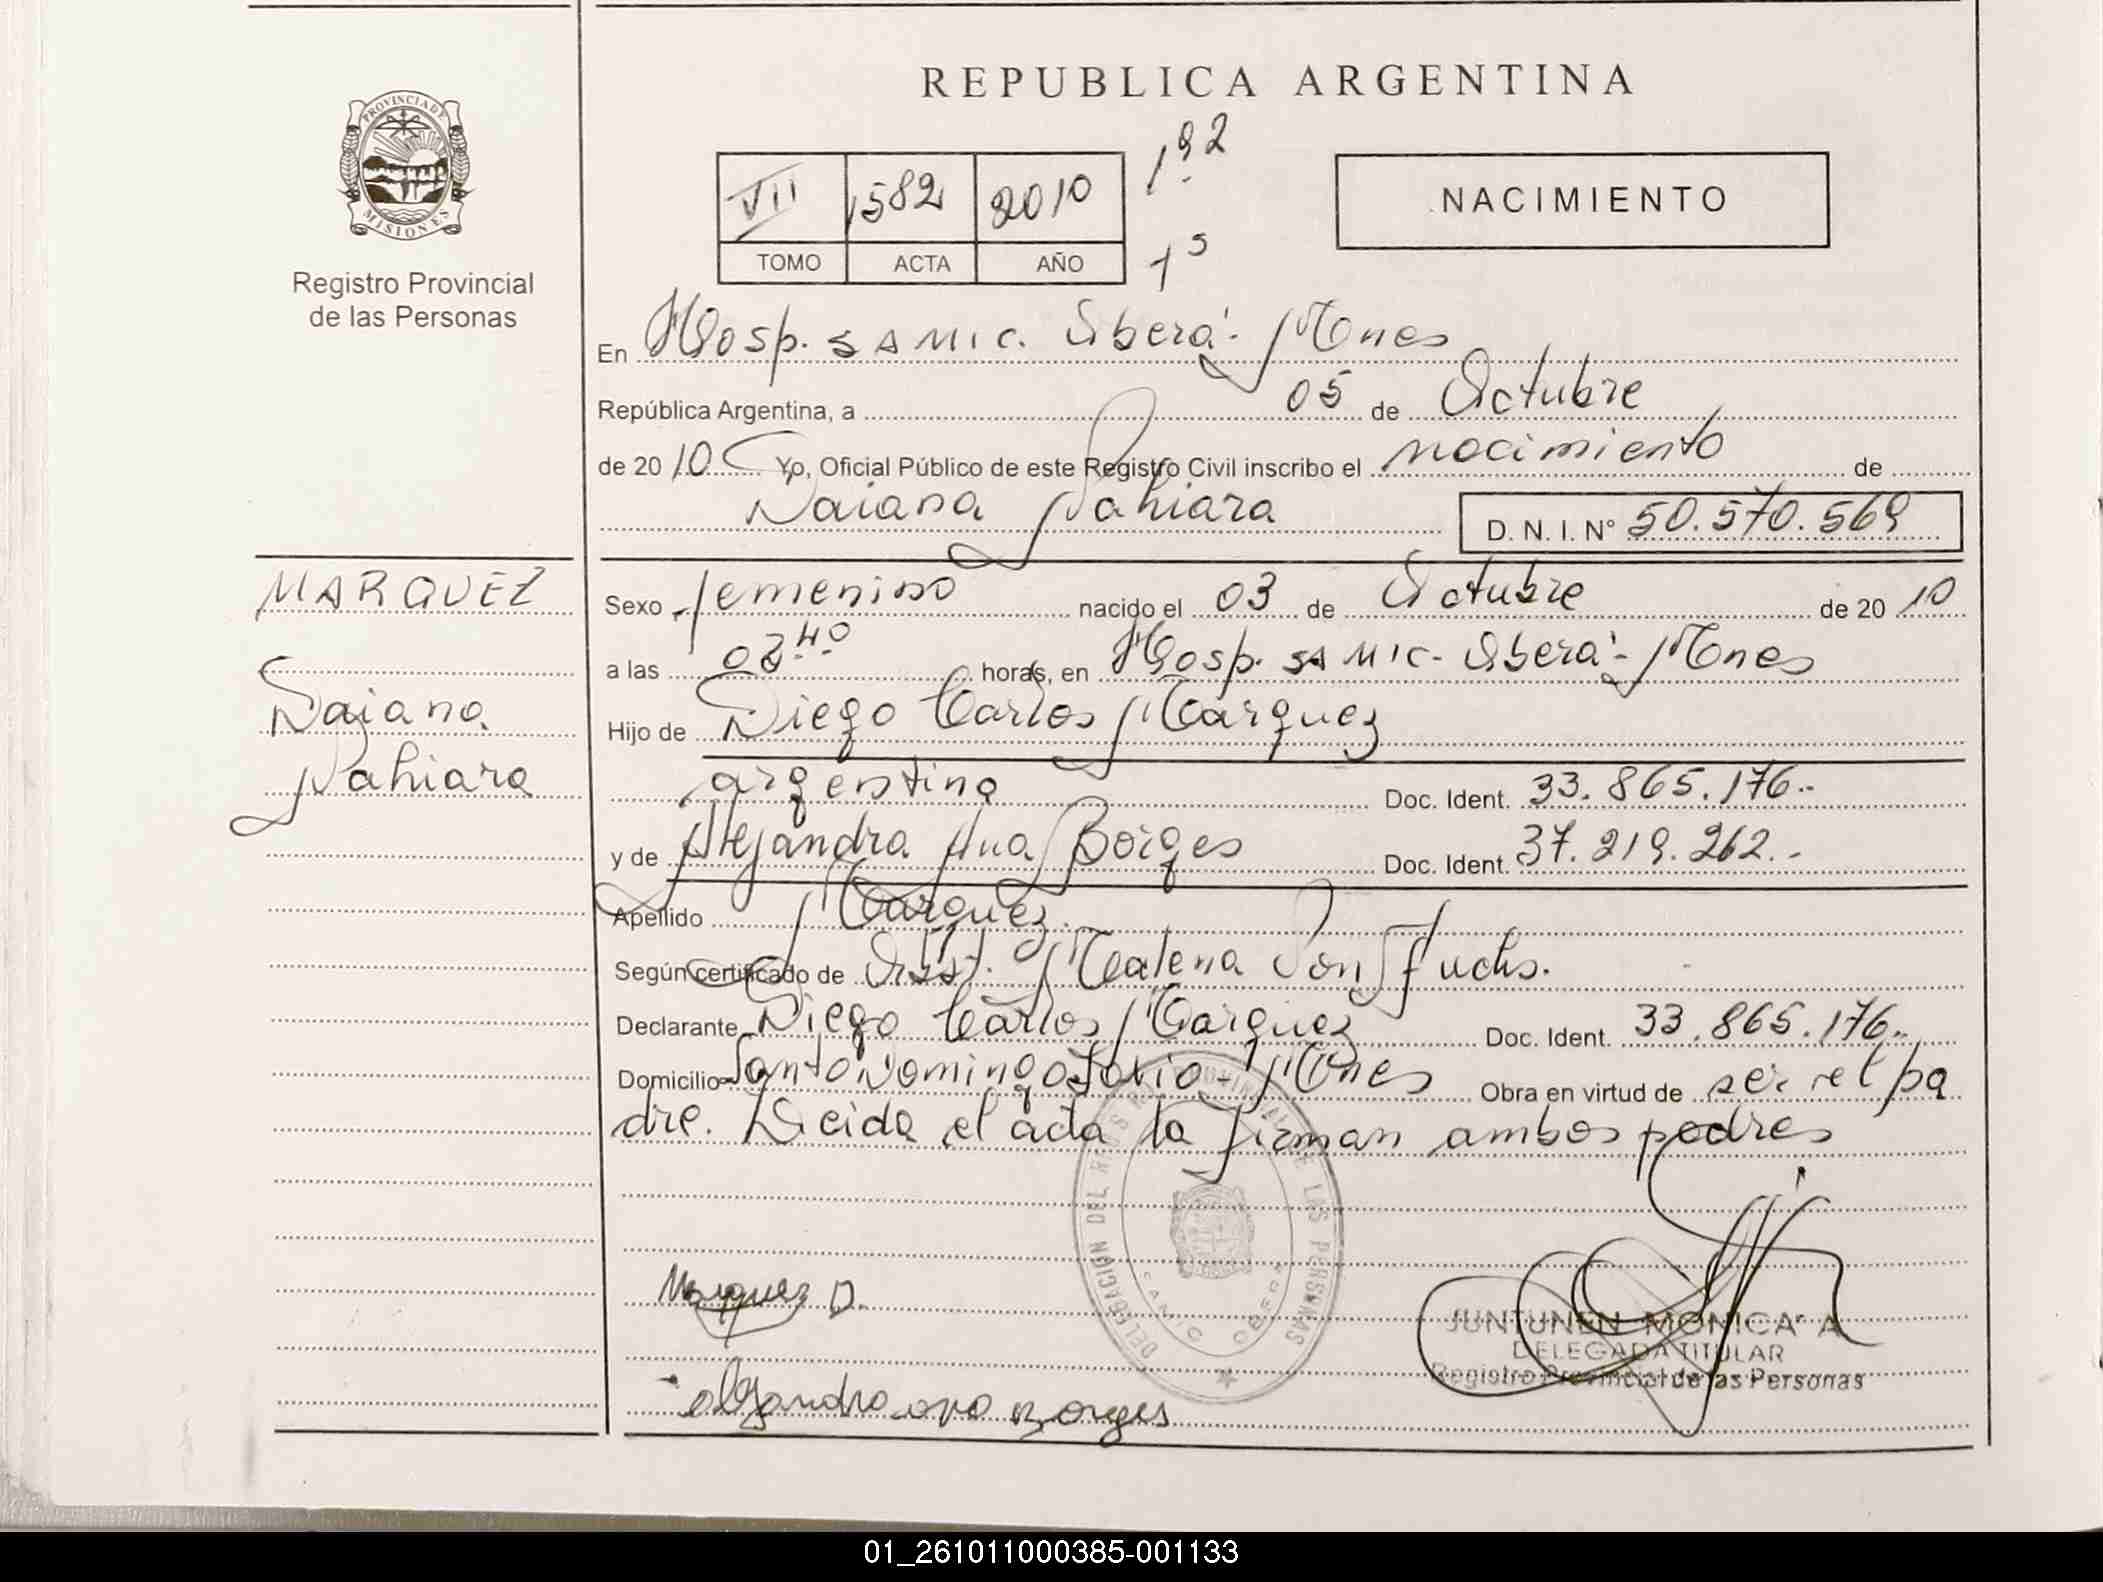 REPUBLICA ARGENTINA
PROVINCIA DE
MISIONES
Registro Provincial
de las Personas
VII 1582 2010
TOMO ACTA AÑO
NACIMIENTO
En Hosp. SAMIC. Oberá - Mnes
República Argentina, a 05 de Octubre
de 2010 Yo, Oficial Público de este Registro Civil inscribo el nacimiento de
Daiana Nahiara D. N. I. Nº 50.570.569
MARQUEZ
Daiana
Nahiara
Sexo femenino nacido el 03 de Octubre de 2010
a las horas, en Hosp. SAMIC - Oberá - Mnes
Hijo de Diego Carlos Marquez
argentina Doc. Ident. 33.865.176.-
y de Alejandra Ana Borges Doc. Ident. 37.219.262.-
Apellido Marquez
Según certificado de Obst. Malena Von Fuchs.
Declarante Diego Carlos Marquez Doc. Ident. 33.865.176.-
Domicilio Santo Domingo Savio - Mnes Obra en virtud de ser el pa
dre. Leida el acta la firman ambos padres
DELEGACION DEL REGISTRO PROVINCIAL DE LAS PERSONAS
SAMIC OBERA
Marquez D.
alejandra ana Borges
JUNTUNEN MONICA A
DELEGADA TITULAR
Registro Provincial de las Personas
01_261011000385-001133